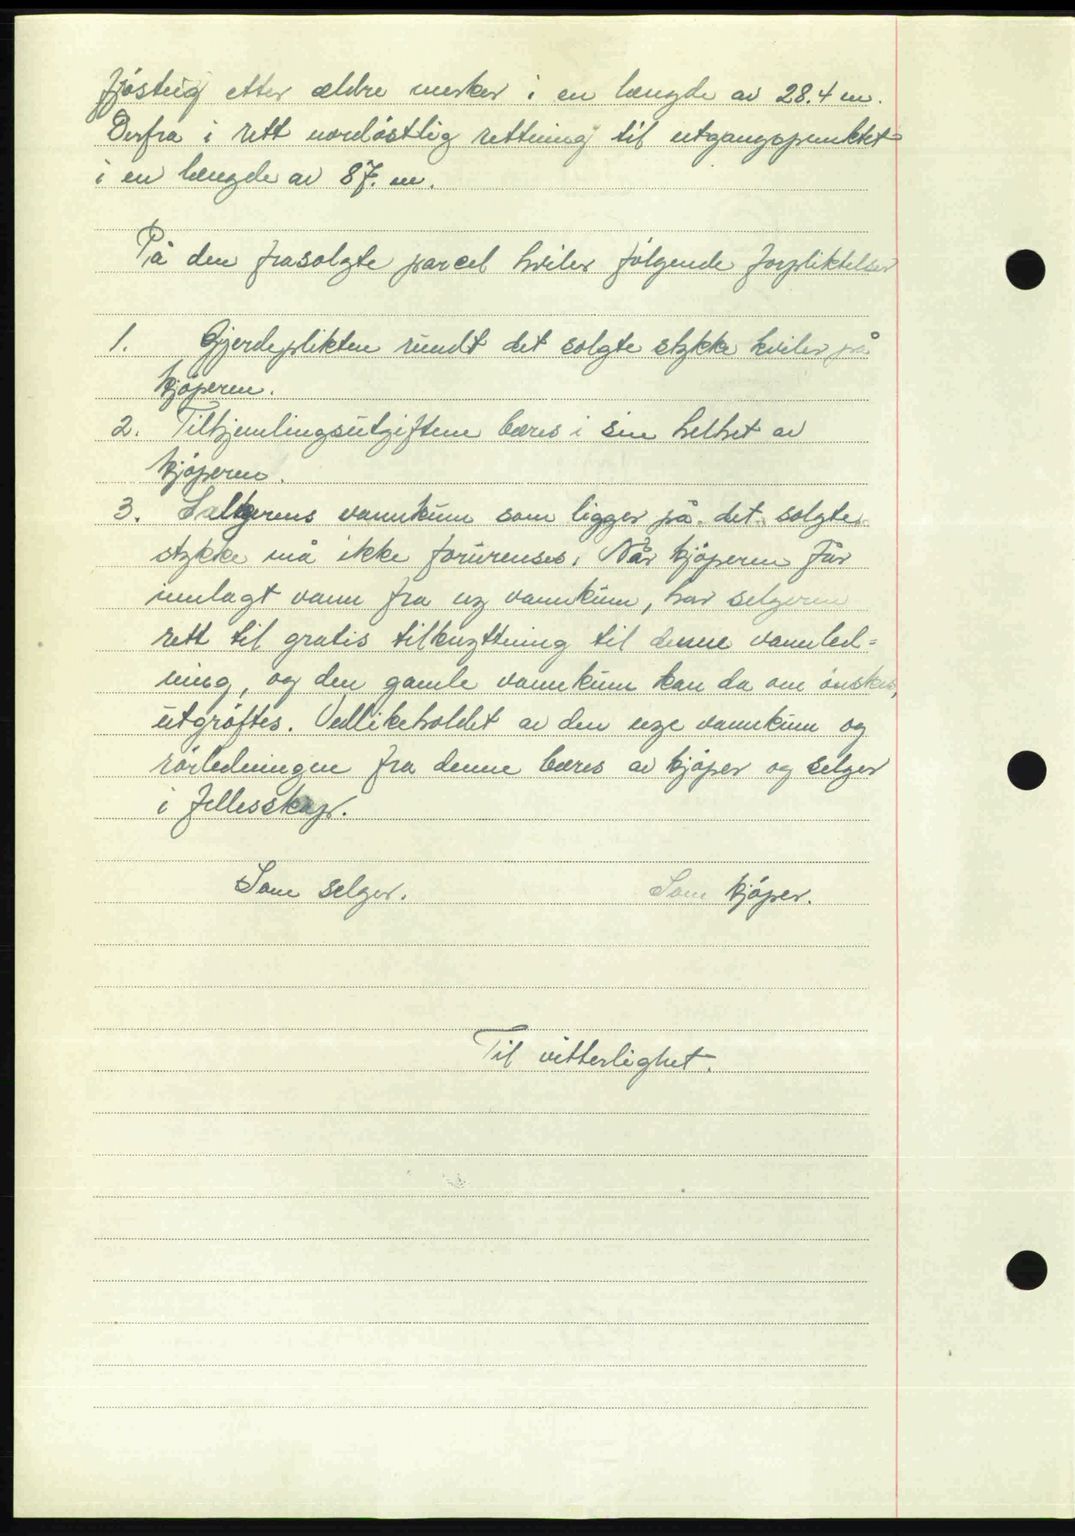 fjösteig etter ældre merker i en længde av 28.4 m.
Derfra i rett nordöstlig rettning til utgangspunktet
i en længde av 87. m.
På den frasolgte parcel hviler fölgende forpliktelser
1. Gjerdeplikten rundt det solgte stykke hviler på
kjöperen.
2. Tilhjemlingsutgiftene bæres i sin helhet av
kjöperen.
3. Selgerens vannkum som ligger på det solgte
stykke må ikke forurenses. Når kjöperen får
innlagt vann fra ny vannkum, har selgeren
rett til gratis tilknyttning til denne vannled=
ning, og den gamle vannkum kan da om önskes,
utgröftes. Vedlikeholdet av den nye vannkum og
rörledningen fra denne bæres av kjöper og selger
i fellesskap.
Som selger. Som kjöper.
Til vitterlighet.